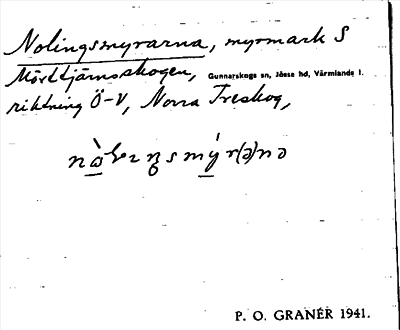 Nolingsmyrarna, myrmark S
Mörttjärnsskogen, Gunnarskogs sn, Jösse hd, Värmlands l.
riktning Ö-V, Norra Treskog,
P. O. GRANÉR 1941.